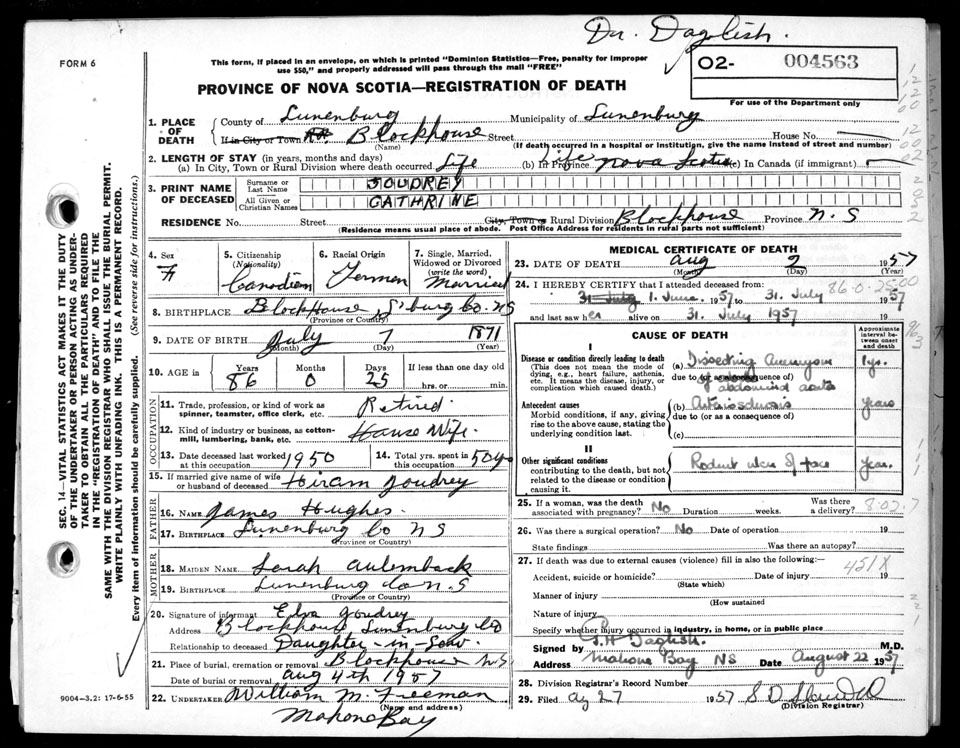 Dr. Daglish.
FORM 6
This form, if placed in an envelope, on which is printed "Dominion Statistics—Free, penalty for improper
use $50," and properly addressed will pass through the mail "FREE"
O2- 004563
For use of the Department only
PROVINCE OF NOVA SCOTIA—REGISTRATION OF DEATH
1. PLACE OF DEATH
County of Lunenburg Municipality of Lunenburg
If in City or Town Blockhouse Street House No.
(Name) (If death occurred in a hospital or institution, give the name instead of street and number)
2. LENGTH OF STAY (in years, months and days)
(a) In City, Town or Rural Division where death occurred Life (b) In Province life Nova Scotia (c) In Canada (if immigrant)
3. PRINT NAME OF DECEASED
Surname or Last Name JOUDREY
All Given or Christian Names CATHRINE
RESIDENCE No. Street City, Town or Rural Division Blockhouse Province N.S
(Residence means usual place of abode. Post Office Address for residents in rural parts not sufficient)
4. Sex F
5. Citizenship (Nationality) Canadian
6. Racial Origin German
7. Single, Married, Widowed or Divorced (write the word) Married
8. BIRTHPLACE BlockHouse L'burg Co. NS
(Province or Country)
9. DATE OF BIRTH July 7 1871
(Month) (Day) (Year)
10. AGE Years 86 Months 0 Days 25 If less than one day old hrs. or min.
OCCUPATION
11. Trade, profession, or kind of work as spinner, teamster, office clerk, etc. Retired.
12. Kind of industry or business, as cotton-mill, lumbering, bank, etc. House Wife.
13. Date deceased last worked at this occupation 1950
14. Total yrs. spent in this occupation 50 ys
15. If married give name of wife or husband of deceased Hiram Joudrey
FATHER
16. NAME James Hughes
17. BIRTHPLACE Lunenburg Co N S
(Province or Country)
MOTHER
18. MAIDEN NAME Sarah Aulemback
19. BIRTHPLACE Lunenburg Co N.S
(Province or Country)
20. Signature of informant Elva Joudrey
Address Blockhouse Lunenburg Co
Relationship to deceased Daughter-in-law.
21. Place of burial, cremation or removal Blockhouse N.S.
Date of burial or removal Aug 4th 1957
22. UNDERTAKER William M. Freeman
(Name and address)
Mahone Bay
MEDICAL CERTIFICATE OF DEATH
23. DATE OF DEATH Aug 2 1957
(Month) (Day) (Year)
86-0-25.00
24. I HEREBY CERTIFY that I attended deceased from:
31 July 1. June. 1957 to 31. July 1957
and last saw her alive on 31. July 1957
CAUSE OF DEATH
Approximate interval between onset and death
I
Disease or condition directly leading to death
(This does not mean the mode of dying, e.g., heart failure, asthenia, etc. It means the disease, injury, or complication which caused death.)
(a) Dissecting Aneurysm 1 yr.
due to (or as a consequence of)
of abdominal aorta
Antecedent causes
Morbid conditions, if any, giving rise to the above cause, stating the underlying condition last.
(b) Arteriosclerosis years
due to (or as a consequence of)
(c)
II
Other significant conditions
contributing to the death, but not related to the disease or condition causing it.
Rodent ulcer of face Years.
25. If a woman, was the death associated with pregnancy? No Duration weeks. Was there a delivery?
26. Was there a surgical operation? No Date of operation 19
State findings Was there an autopsy?
27. If death was due to external causes (violence) fill in also the following:—
451X
Accident, suicide or homicide? Date of injury 19
(State which)
Manner of injury
(How sustained
Nature of injury
Specify whether injury occurred in industry, in home, or in public place
Signed by Daglish. M.D.
Address Mahone Bay NS Date August 22 1957
28. Division Registrar's Record Number
29. Filed Ag 27 1957
(Division Registrar)
SEC. 14—VITAL STATISTICS ACT MAKES IT THE DUTY
OF THE UNDERTAKER OR PERSON ACTING AS UNDER-
TAKER TO OBTAIN ALL THE PARTICULARS REQUIRED
IN THE "REGISTRATION OF DEATH" AND TO FILE THE
SAME WITH THE DIVISION REGISTRAR WHO SHALL ISSUE THE BURIAL PERMIT.
WRITE PLAINLY WITH UNFADING INK. THIS IS A PERMANENT RECORD.
Every item of information should be carefully supplied. (See reverse side for instructions.)
9004—3.2: 17-6-55